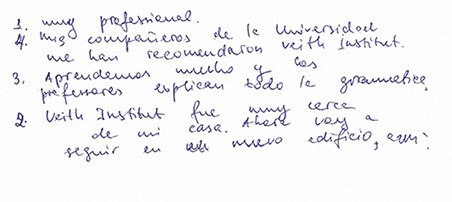 1. muy professional.
4. mis compañeros de la Universidad
me han recomendaron Veith Institut.
3. Aprendemos mucho y los
professores explican todo la grammatica,
2. Veith Institut fue muy cerca
de mi casa. Ahora voy a
seguir en nuevo edificio,